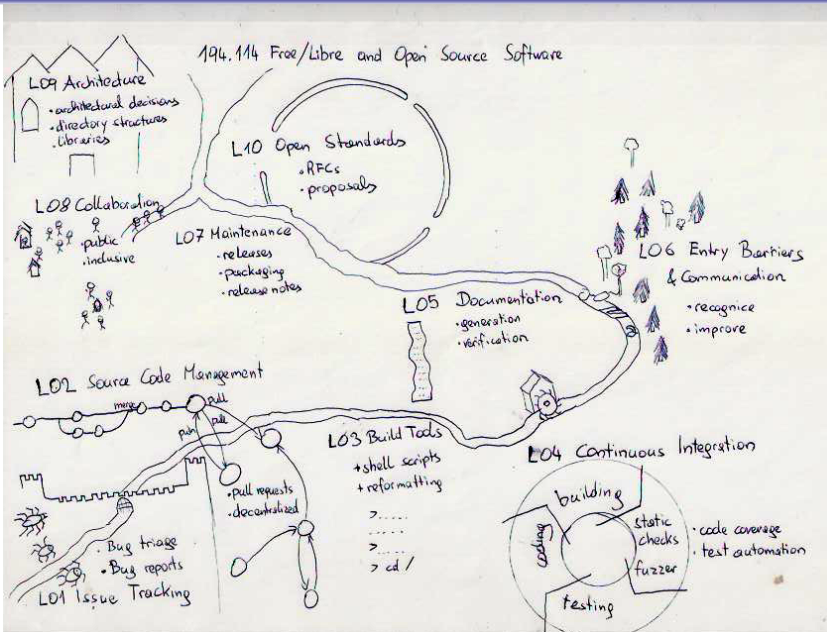 194.114 Free/Libre and Open Source Software
L09 Architecture
• architectural decisions
• directory structures
• libraries
L10 Open Standards
• RFCs
• proposals
L08 Collaboration
• public
• inclusive
L07 Maintenance
• releases
• packaging
• release notes
L06 Entry Barriers
& Communication
• recognice
• improve
L05 Documentation
• generation
• verification
L02 Source Code Management
merge
pull
push
pull
• pull requests
• decentralized
L03 Build Tools
+ shell scripts
+ reformatting
>.....
.....
>.....
> cd /
L04 Continuous Integration
building
static
checks
fuzzer
testing
coding
• code coverage
• test automation
• Bug triage
• Bug reports
L01 Issue Tracking